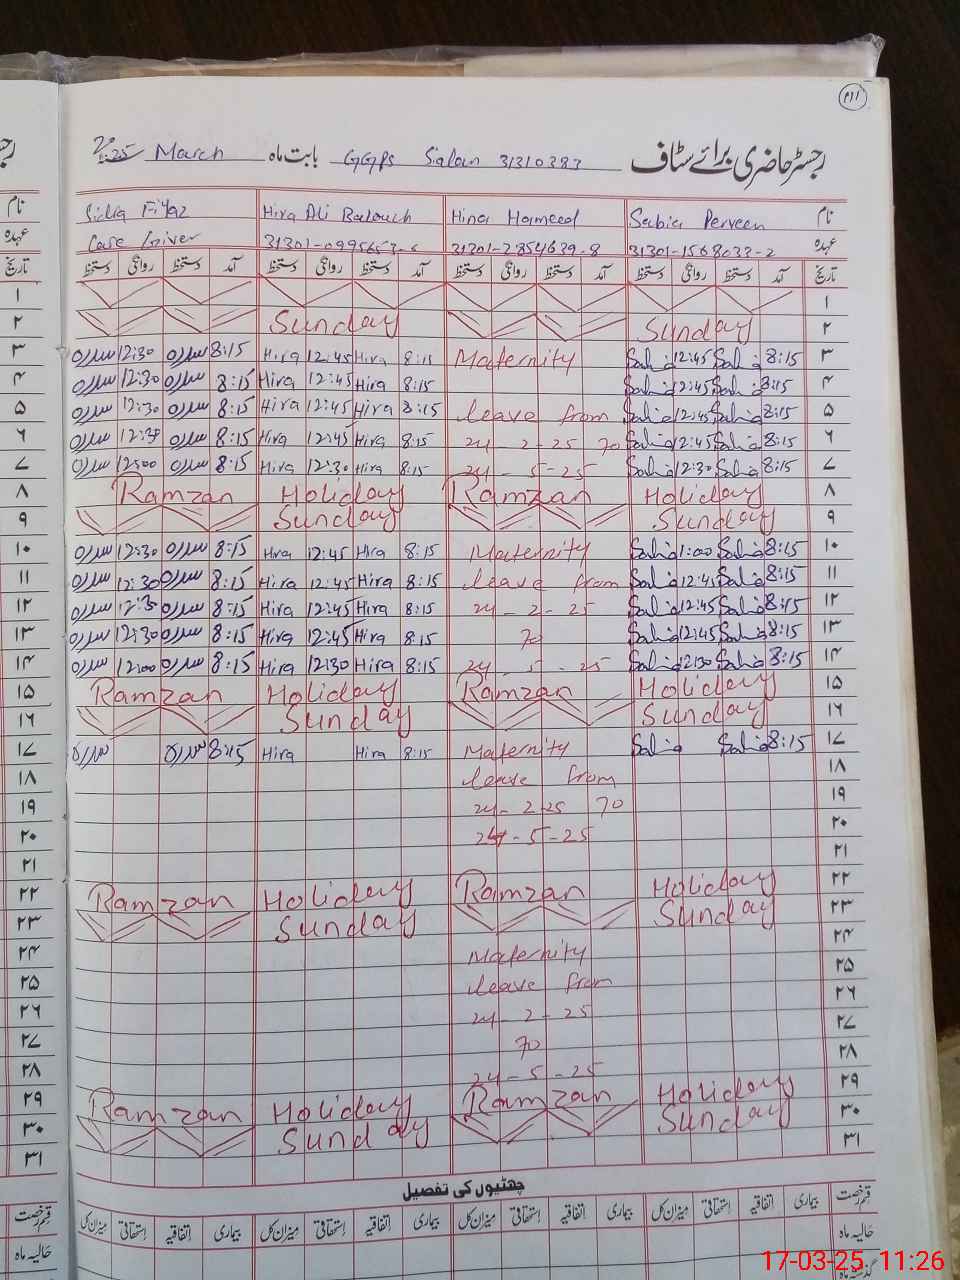 ۳۱۱
رجسٹر حاضری برائے سٹاف GGPS Sialan 31310383 بابت ماہ March 2025
نام Sabia Perveen Hina Hameed Hira Ali Balouch Sidra Fiyaz
عہدہ 31301-1568033-2 31301-2854639-8 Care Giver
تاریخ آمد دستخط روانگی دستخط آمد دستخط روانگی دستخط آمد دستخط روانگی دستخط آمد دستخط روانگی دستخط
۱
۲ Sunday Sunday
۳ سدرہ 12:30 سدرہ 8:15 Hira 12:45 Hira 8:15 Maternity Sabia 12:45 Sabia 8:15
۴ سدرہ 12:30 سدرہ 8:15 Hira 12:45 Hira 8:15 Sabia 12:45 Sabia 8:15
۵ سدرہ 12:30 سدرہ 8:15 Hira 12:45 Hira 8:15 leave from Sabia 12:45 Sabia 8:15
۶ سدرہ 12:30 سدرہ 8:15 Hira 12:45 Hira 8:15 24-2-25 To Sabia 12:45 Sabia 8:15
۷ سدرہ 12:00 سدرہ 8:15 Hira 12:30 Hira 8:15 24-5-25 Sabia 12:30 Sabia 8:15
۸ Ramzan Holiday Ramzan Holiday
۹ Sunday Sunday
۱۰ سدرہ 12:30 سدرہ 8:15 Hira 12:45 Hira 8:15 Maternity Sabia 1:00 Sabia 8:15
۱۱ سدرہ 12:30 سدرہ 8:15 Hira 12:45 Hira 8:15 leave from Sabia 12:45 Sabia 8:15
۱۲ سدرہ 12:30 سدرہ 8:15 Hira 12:45 Hira 8:15 24-2-25 Sabia 12:45 Sabia 8:15
۱۳ سدرہ 12:30 سدرہ 8:15 Hira 12:45 Hira 8:15 To Sabia 12:45 Sabia 8:15
۱۴ سدرہ 12:00 سدرہ 8:15 Hira 12:30 Hira 8:15 24-5-25 Sabia 12:30 Sabia 8:15
۱۵ Ramzan Holiday Ramzan Holiday
۱۶ Sunday Sunday
۱۷ سدرہ سدرہ 8:15 Hira Hira 8:15 Maternity Sabia Sabia 8:15
۱۸ leave from
۱۹ 24-2-25 To
۲۰ 24-5-25
۲۱
۲۲ Ramzan Holiday Ramzan Holiday
۲۳ Sunday Sunday
۲۴ Maternity
۲۵ leave from
۲۶ 24-2-25
۲۷ To
۲۸ 24-5-25
۲۹ Ramzan Holiday Ramzan Holiday
۳۰ Sunday Sunday
۳۱
چھٹیوں کی تفصیل
قسم رخصت بیماری اتفاقیہ استحقاقی میزان کل بیماری اتفاقیہ استحقاقی میزان کل بیماری اتفاقیہ استحقاقی میزان کل بیماری اتفاقیہ استحقاقی میزان کل
حالیہ ماہ
گذشتہ ماہ
17-03-25 11:26